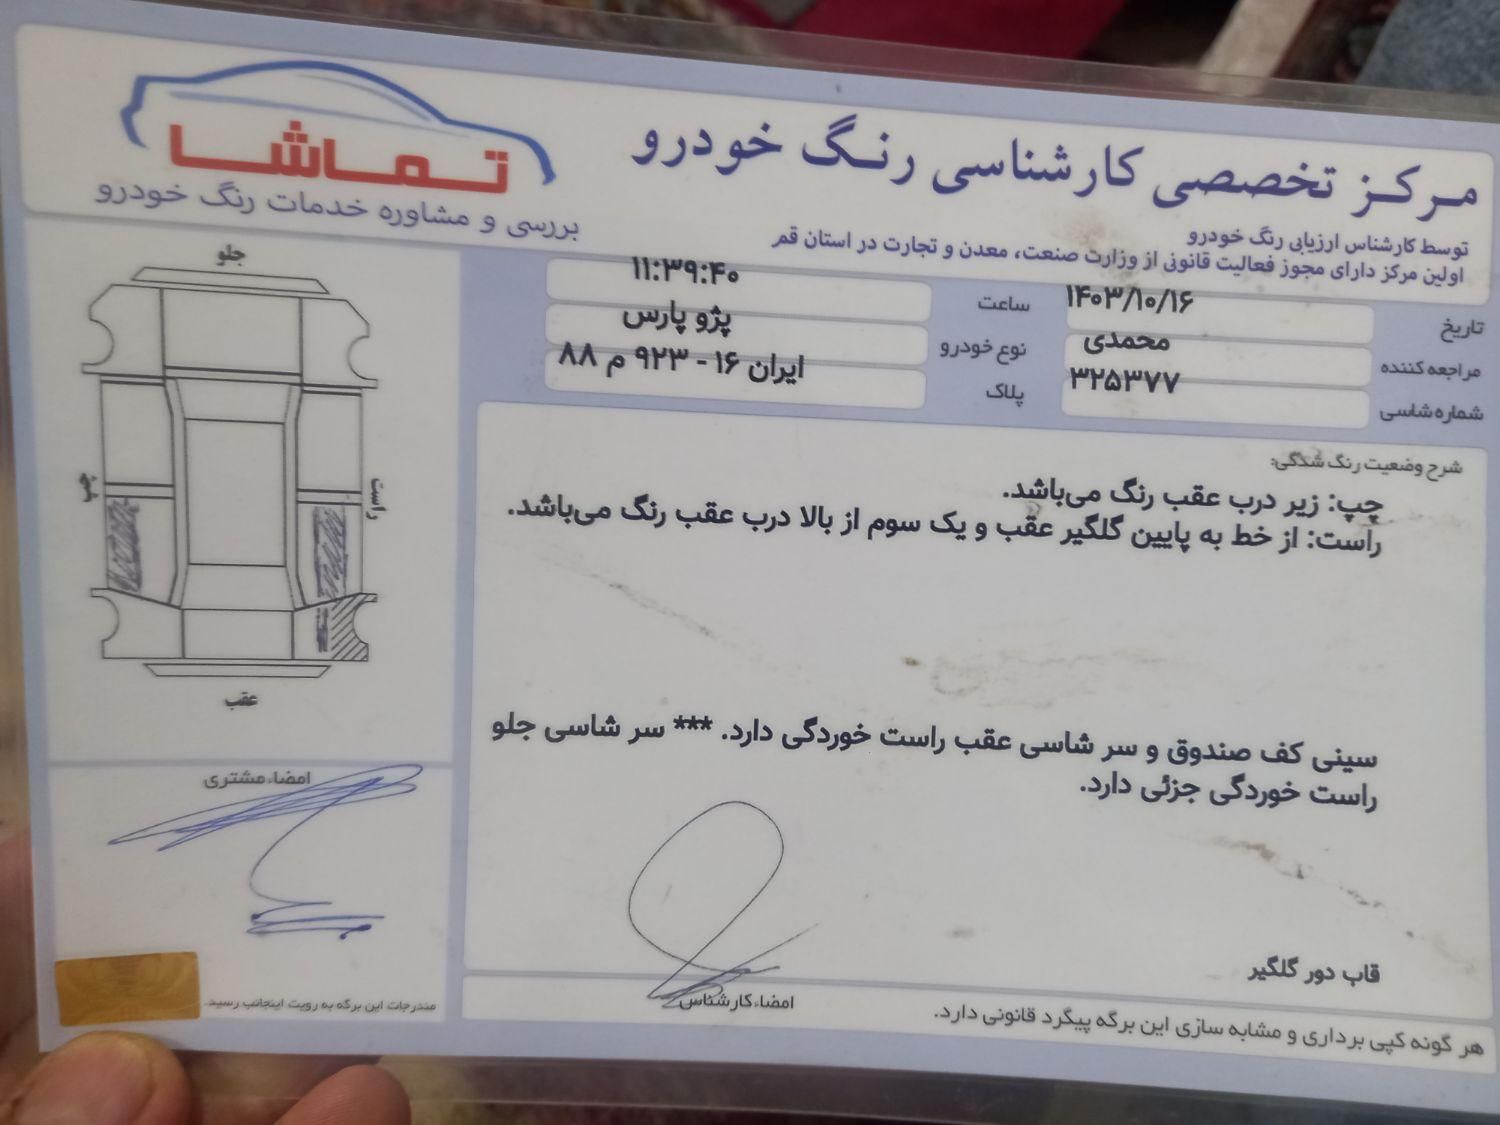 تماشا
بررسی و مشاوره خدمات رنگ خودرو
مرکز تخصصی کارشناسی رنگ خودرو
توسط کارشناس ارزیابی رنگ خودرو
اولین مرکز دارای مجوز فعالیت قانونی از وزارت صنعت، معدن و تجارت در استان قم
تاریخ ۱۴۰۳/۱۰/۱۶ ساعت ۱۱:۳۹:۴۰
مراجعه کننده محمدی نوع خودرو پژو پارس
شماره شاسی ۳۲۵۳۷۷ پلاک ایران ۱۶ - ۹۲۳ م ۸۸
شرح وضعیت رنگ شدگی:
چپ: زیر درب عقب رنگ می‌باشد.
راست: از خط به پایین گلگیر عقب و یک سوم از بالا درب عقب رنگ می‌باشد.
سینی کف صندوق و سر شاسی عقب راست خوردگی دارد. *** سر شاسی جلو
راست خوردگی جزئی دارد.
قاب دور گلگیر
امضاء کارشناس
هر گونه کپی برداری و مشابه سازی این برگه پیگرد قانونی دارد.
جلو
چپ
راست
عقب
امضاء مشتری
مندرجات این برگه به رویت اینجانب رسید.